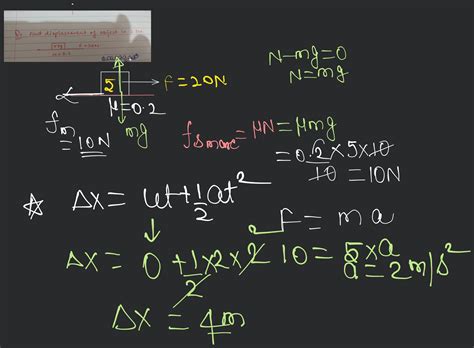 Find displacement of object in
5
F=20N
μ=0.2
fm = 10N
mg
N-mg=0
N=mg
fsmax = μN = μmg
= 0.2×5×10
10 = 10N
ΔX = ut+1/2at²
F = ma
ΔX = 0+1/2×2×2²
10 = 5×a
a = 2m/s²
ΔX = 4m